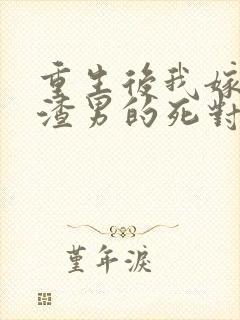 重生後我嫁
渣男的死對
堇年淚